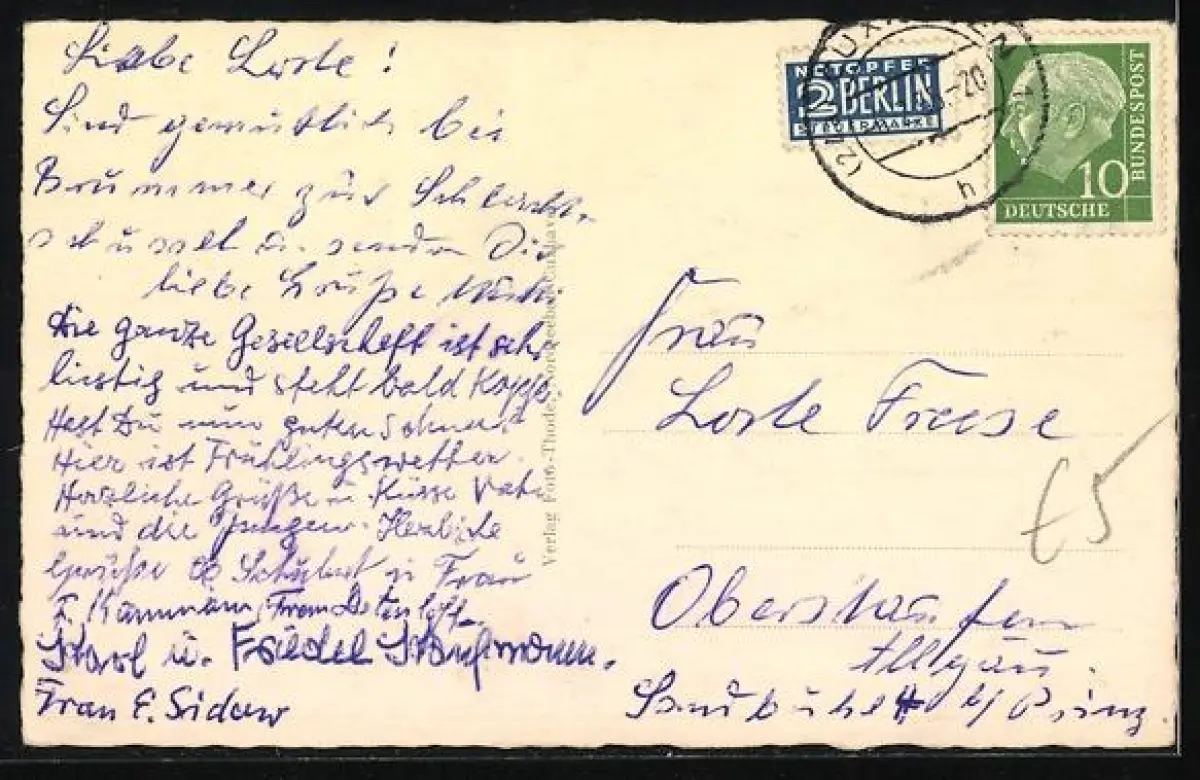 Liebe Lotte!
Sind gemütlich bei
Brummer zur Schlacht-
schüssel u. senden Dir
liebe Grüße
Die ganze Gesellschaft ist sehr
lustig und steht bald Kopf.
Hast Du nun guten Schnee?
Hier ist Frühlingswetter.
Herzliche Grüße u. Küsse Vati
und die Jungen. Herzliche
Grüße Schubert u. Frau
F. Kammann, Frau Detenhoff
Karl u. Friedel Kaufmann.
Frau E. Sidow
Verlag Foto-Thode, Nordseebad Cuxhaven
NOTOPFER
2 BERLIN
STEUERMARKE
-20
h
10
DEUTSCHE
BUNDESPOST
Frau
Lotte Freese
£5
Oberstaufen
Allgäu.
Sandbühel b/ Prinz